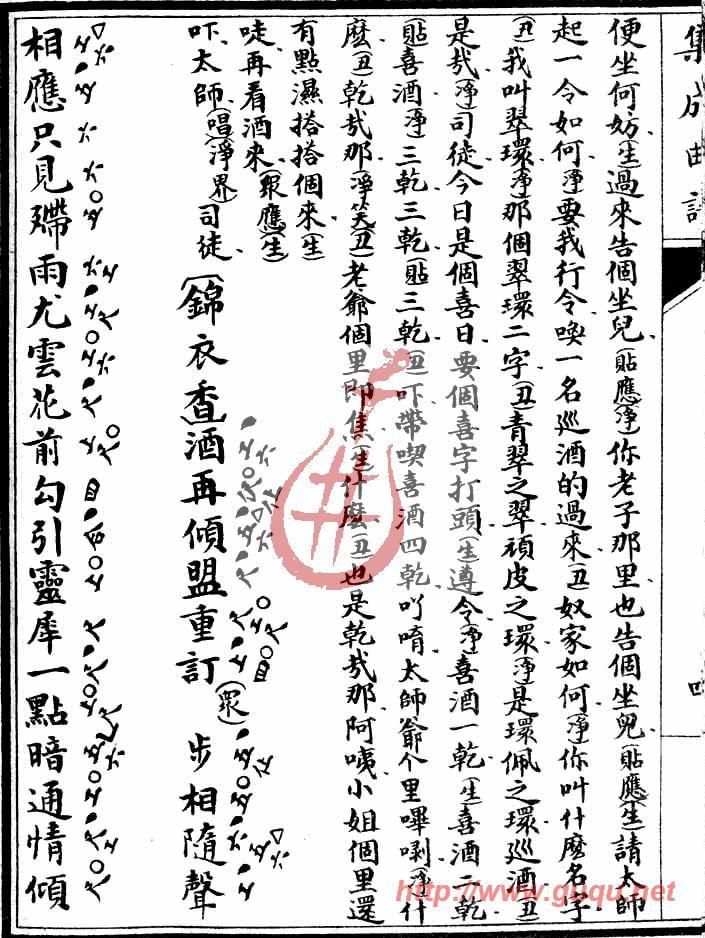 集成曲譜
便坐何妨(生)過來告個坐兒(貼應淨)你老子那里也告個坐兒(貼應生)請太師
起一令如何(淨)要我行令喚一名巡酒的過來(丑)奴家如何(淨)你叫什麽名字
(丑)我叫翠環(淨)那個翠環二字(丑)青翠之翠頑皮之環(淨)是環佩之環巡酒(丑)
是哉(淨)司徒今日是個喜日要個喜字打頭(生)遵令(淨)喜酒一乾(生)喜酒二乾
(貼)喜酒(淨)三乾三乾(貼)三乾(丑)吓帶喫喜酒四乾吖唷太師爺个里嗶唎(淨)什
麽(丑)乾哉那(淨笑丑)老爺個里即焦(生)什麽(丑)也是乾哉那阿咦小姐個里還
有點濕搭搭個來(生)
唗再看酒來(衆應生)
吓太師(唱淨界)司徒
(錦衣香)酒再傾盟重訂(衆)步相隨聲
相應只見殢雨尤雲花前勾引靈犀一點暗通情傾
http://www.guqu.net